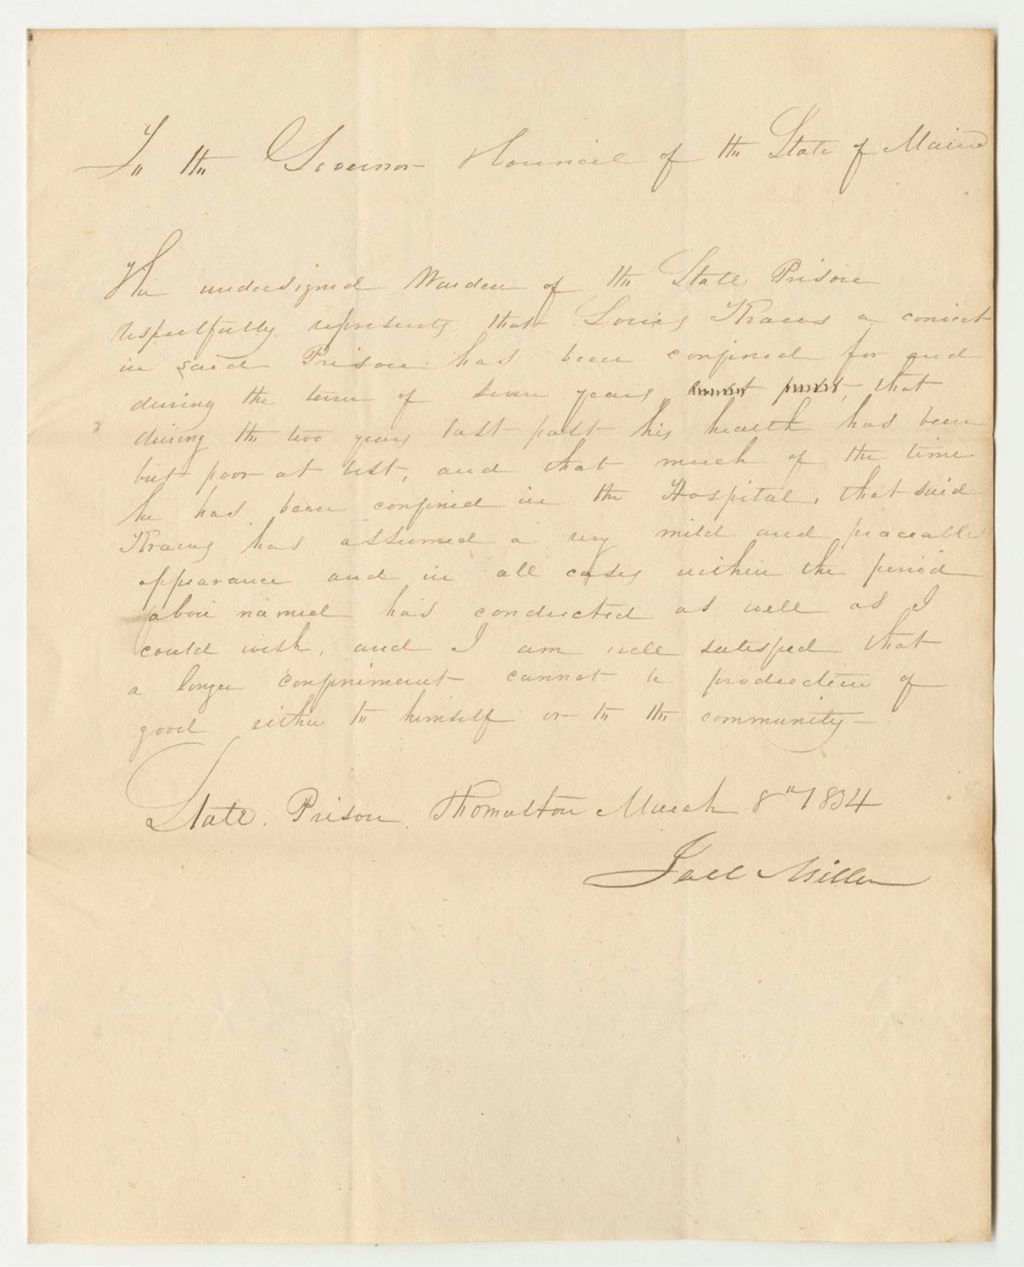 To the Governor & Council of the State of Maine
The undersigned Warden of the State Prison
respectfully represents that Louis a convict
in said Prison has been confined for and
during the term of seven years that
during the two years last past his health has been
but poor at best, and that much of the time
he has been confined in the Hospital, that said
has assumed a very mild and peaceable
appearance and in all cases within the period
above named has conducted as well as I
could wish, and I am well satisfied that
a longer confinement cannot be productive of
good either to himself or to the community
State Prison Thomaston March 8th 1834
Joel Miller